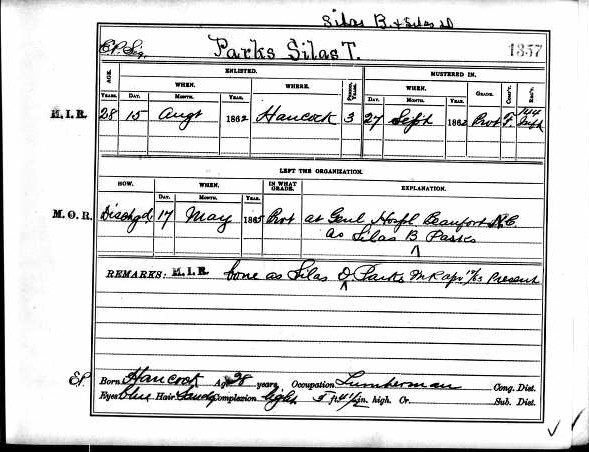 Silas B. & Silas D
E.P. Sig. Parks Silas T. 1357
AGE. ENLISTED. MUSTERED IN.
WHEN. WHERE. PERIOD, YEARS. WHEN. GRADE. COMP'Y. REG'T.
YEARS. DAY. MONTH. YEAR. DAY. MONTH. YEAR.
M.I.R. 28 15 Augt 1862 Hancock 3 27 Sept 1862 Pvt F. 144 Inf
LEFT THE ORGANIZATION.
HOW. WHEN. IN WHAT GRADE. EXPLANATION.
DAY. MONTH. YEAR.
M.O.R. Dischgd 17 May 1865 Pvt at Genl Hospl Beaufort N.C.
as Silas B Parks
REMARKS: M.I.R. bone as Silas D Parks M R apr Present
E.P. Born Hancock Age 28 years, Occupation Lumberman Cong. Dist.
Eyes blue Hair Sandy Complexion light 5 ft. 4½ in. high. Cr. Sub. Dist.